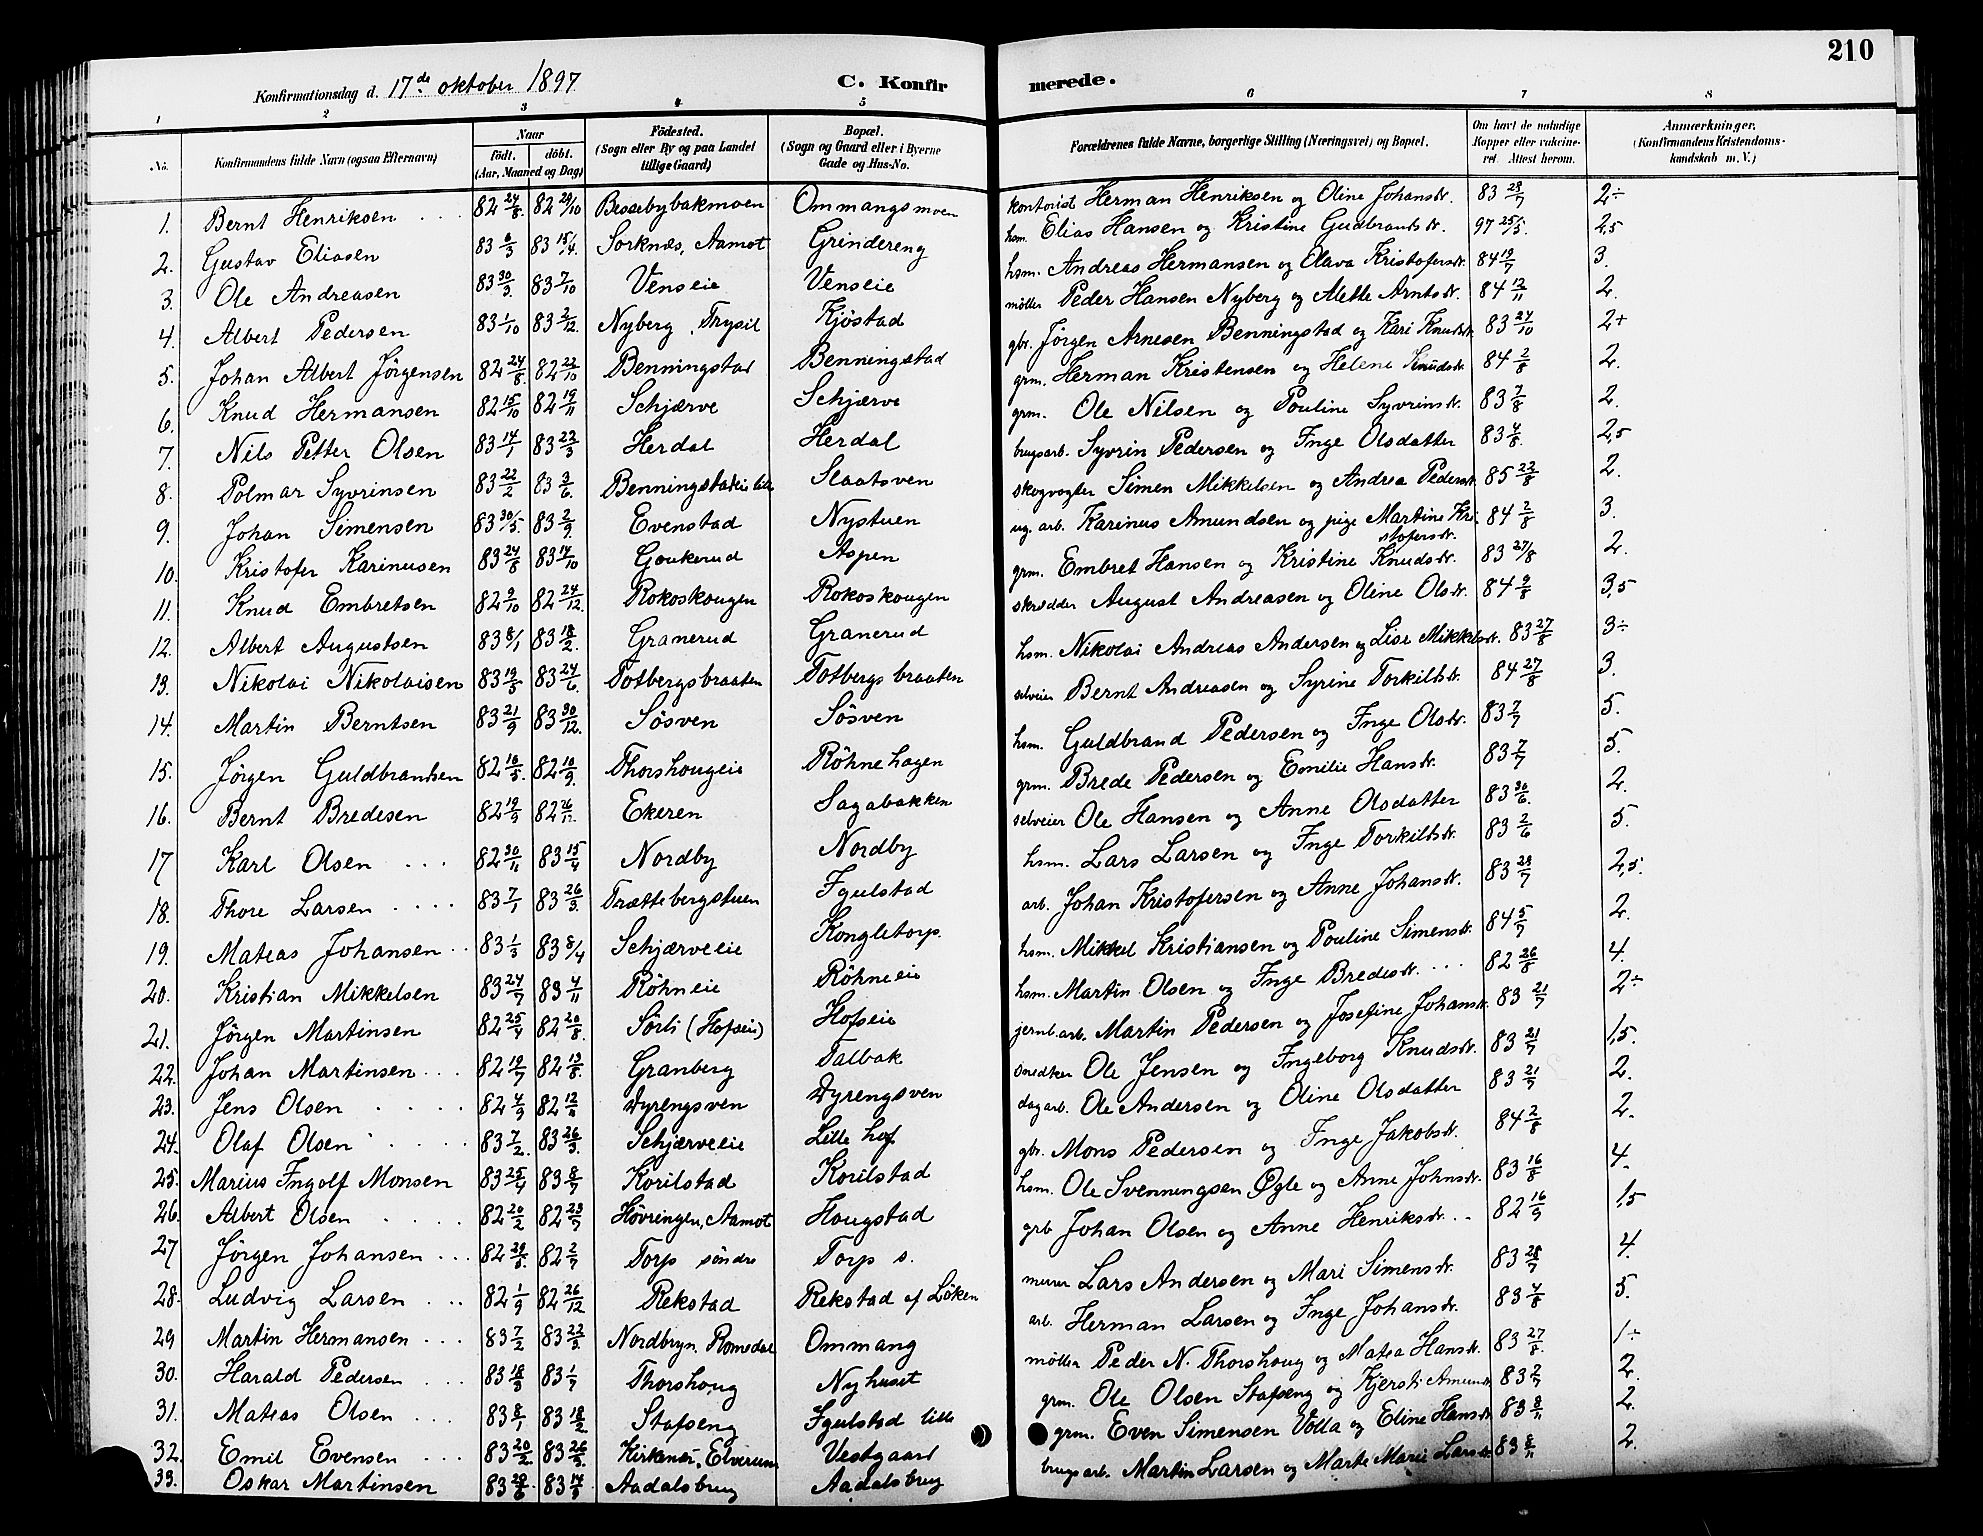 210
Konfirmationsdag d. 17de oktober 1897 C. Konfirmerede.
1 2 3 4 5 6 7 8
No. Konfirmandens fulde Navn (ogsaa Efternavn) Naar födt. döbt. (Aar, Maaned og Dag) Födested. (Sogn eller By og paa Landet tillige Gaard) Bopæl. (Sogn og Gaard eller i Byerne Gade og Hus-No. Forældrenes fulde Navne, borgerlige Stilling (Næringsvei) og Bopæl. Om havt de naturlige Kopper eller vakcineret. Attest herom. Anmærkninger. (Konfirmandens Kristendomskundskab m. V.)
1. Bernt Henriksen 82 24/8. 82 29/10 Bessebybakmoen Ommangsmoen kontorist Herman Henriksen og Oline Johansdr. 83 28/7 2÷
2. Gustav Eliasen 83 6/3 83 15/4. Sorknæs, Aamot Grindereng hsm. Elias Hansen og Kristine Gudbrandsdr. 97 25/5. 2,5
3. Ole Andreasen 83 30/3. 83 7/10 Venseie Venseie hsm. Andreas Hermansen og Olava Kristofersdr. 84 19/7 3.
4. Albert Pedersen 83 1/10 83 2/12. Nyberg, Trysil Kjöstad möller Peder Hansen Nyberg og Alette Arntsdr. 84 12/11 2.
5. Johan Albert Jörgensen 82 24/8. 82 22/10 Benningstad Benningstad gbr. Jörgen Arnesen Benningstad og Kari Knudsdr. 83 24/10 2+
6. Knud Hermansen 82 15/10 82 19/11 Schjærve Schjærve grm. Herman Kristensen og Helene Knudsdr. 84 2/8 2.
7. Nils Petter Olsen 83 14/1 83 22/3 Herdal Herdal grm. Ole Nilsen og Pouline Syvrinsdr. 83 7/8 2.
8. Polmar Syvrinsen 83 22/2 83 3/6. Benningstadeie lille Slaatsven brugsarb. Syvrin Pedersen og Inge Olsdatter 83 4/8. 2,5
9. Johan Simensen 83 30/5. 83 2/9. Evenstad Nystuen skogvogter Simen Mikkelsen og Andrea Pedersdr. 85 22/8 2.
10. Kristofer Karinusen 83 24/8 83 14/10 Goukerud Aspen ug. arb. Karinus Amundsen og pige Martine Kristofersdr. 84 2/8 3.
11. Knud Embretsen 82 9/10 82 24/12. Rokoskougen Rokoskougen grm. Embret Hansen og Kristine Knudsdr. 83 27/8 2.
12. Albert Augustsen 83 8/1 83 18/2. Granerud Granerud skrædder August Andreasen og Oline Olsdr. 84 9/8 3,5
13. Nikolai Nikolaisen 83 19/5 83 24/6. Totbergsbraaten Totbergsbraaten hsm. Nikolai Andreas Andersen og Lise Mikkelsdr. 83 27/8 3÷
14. Martin Berntsen 83 21/9 83 30/12. Sösven Sösven selveier Bernt Andreasen og Syrine Torkildsdr. 84 27/8 3.
15. Jörgen Guldbrandsen 82 16/5. 82 10/9. Thorshougeie Röhnehagen hsm. Guldbrand Pedersen og Inge Olsdr. 83 7/7 5.
16. Bernt Bredesen 82 19/9 82 26/12. Ekeren Sagabakken grm. Brede Pedersen og Emilie Hansdr. 83 7/7 5.
17 Karl Olsen 82 30/11 83 15/4 Nordby Nordby selveier Ole Hansen og Anne Olsdatter 83 30/6. 2.
18. Thore Larsen 83 7/1 83 26/3 Trættebergstuen Igulstad hsm. Lars Larsen og Inge Torkildsdr. 83 2/6 5.
19. Mateas Johansen 83 1/3 83 8/4 Schjærveeie Kongletorp. arb. Johan Kristofersen og Anne Johansdr. 83 28/7 2,5.
20. Kristian Mikkelsen 83 24/7 83 4/11 Röhneie Röhneeie hsm. Mikkel Kristiansen og Pouline Simensdr. 84 5/7 2.
21. Jörgen Martinsen 82 25/4 82 20/8. Sörli (Hofseie) Hofseie hsm. Martin Olsen og Inge Bredesdr. 82 26/8 4.
22. Johan Martinsen 82 19/7 82 13/8. Granberg Talbak jernb.arb. Martin Pedersen og Josefine Johansdr. 83 21/7 2÷
23. Jens Olsen 82 4/3 82 12/4 Dyrengsven Dyrengsven snedker Ole Jensen og Ingeborg Knudsdr. 83 21/7 1,5.
24. Olaf Olsen 83 7/2. 83 26/3. Schjærveeie Lille hof dagarb. Ole Andersen og Oline Olsdatter 83 21/7 2.
25. Marius Ingolf Monsen 83 25/4 83 8/7 Korilstad Korilstad gbr. Mons Pedersen og Inge Jakobsdr. 84 2/8 2.
26. Albert Olsen 82 20/2 82 23/7 Hövringen, Aamot Hougstad hsm. Ole Svenningsen Ögle og Anne Johnsdr. 83 16/8 4.
27 Jörgen Johansen 82 28/5. 82 2/7 Torp söndre Torp s. grb Johan Olsen og Anne Henriksdr. 82 16/9 1,5
28. Ludvig Larsen 82 1/9 82 26/12 Rekstad Rekstad af Löken murer Lars Andersen og Mari Simensdr. 83 28/7 4.
29 Martin Hermansen 83 7/2 83 22/3. Nordbyn. Romedal Ommang arb. Herman Larsen og Inge Johansdr. 83 4/8 5.
30. Harald Pedersen 83 18/3 83 1/7 Thorshoug Nyhuset möller Peder N. Thorshoug og Matea Hansdr. 83 27/8. 1÷
31. Mateas Olsen 83 8/1 83 18/2. Stafseng Igulstad lille grm. Ole Olsen Stafseng og Kjersti Amundsdr. 83 2/7 2.
32. Emil Evensen 83 20/2. 83 26/3. Kirkenær, Elverum Vestgaard grm. Even Simensen Volla og Eline Hansdr. 83 8/11 2.
33. Oskar Martinsen 83 28/6 83 14/9 Aadalsbrug Aadalsbrug brugsarb. Martin Larsen og Marte Marie Larsdr. 83 8/11 2.